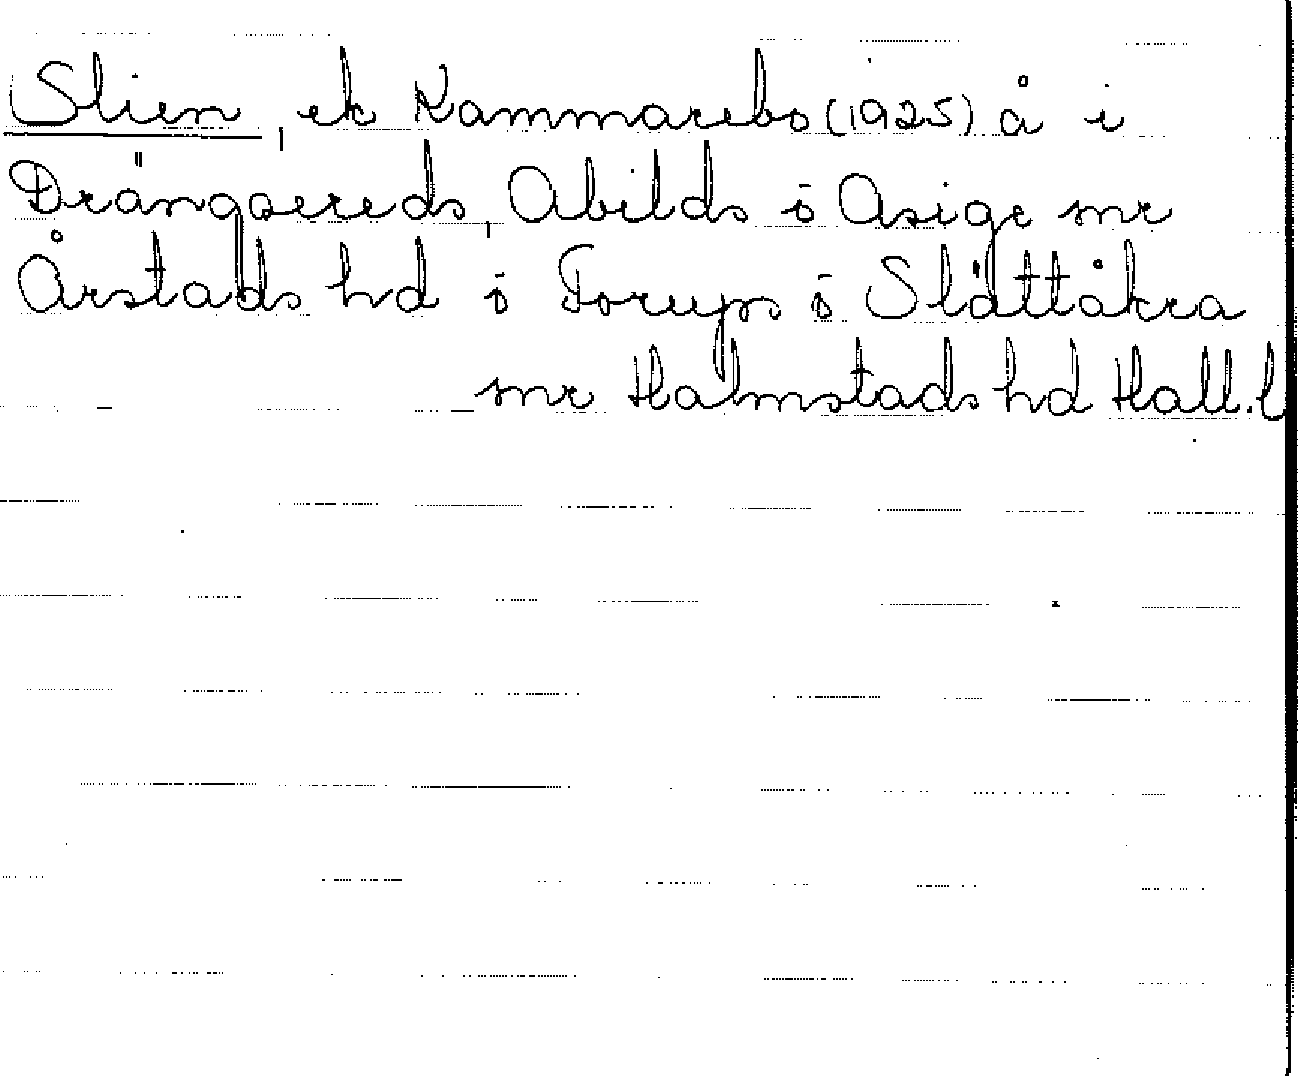 Slien, ek Kammarebo (1925) å i
Drängsereds, Abilds ö Asige snr
Årstads hd ö Torups ö Slättåkra
snr Halmstads hd Hall. l